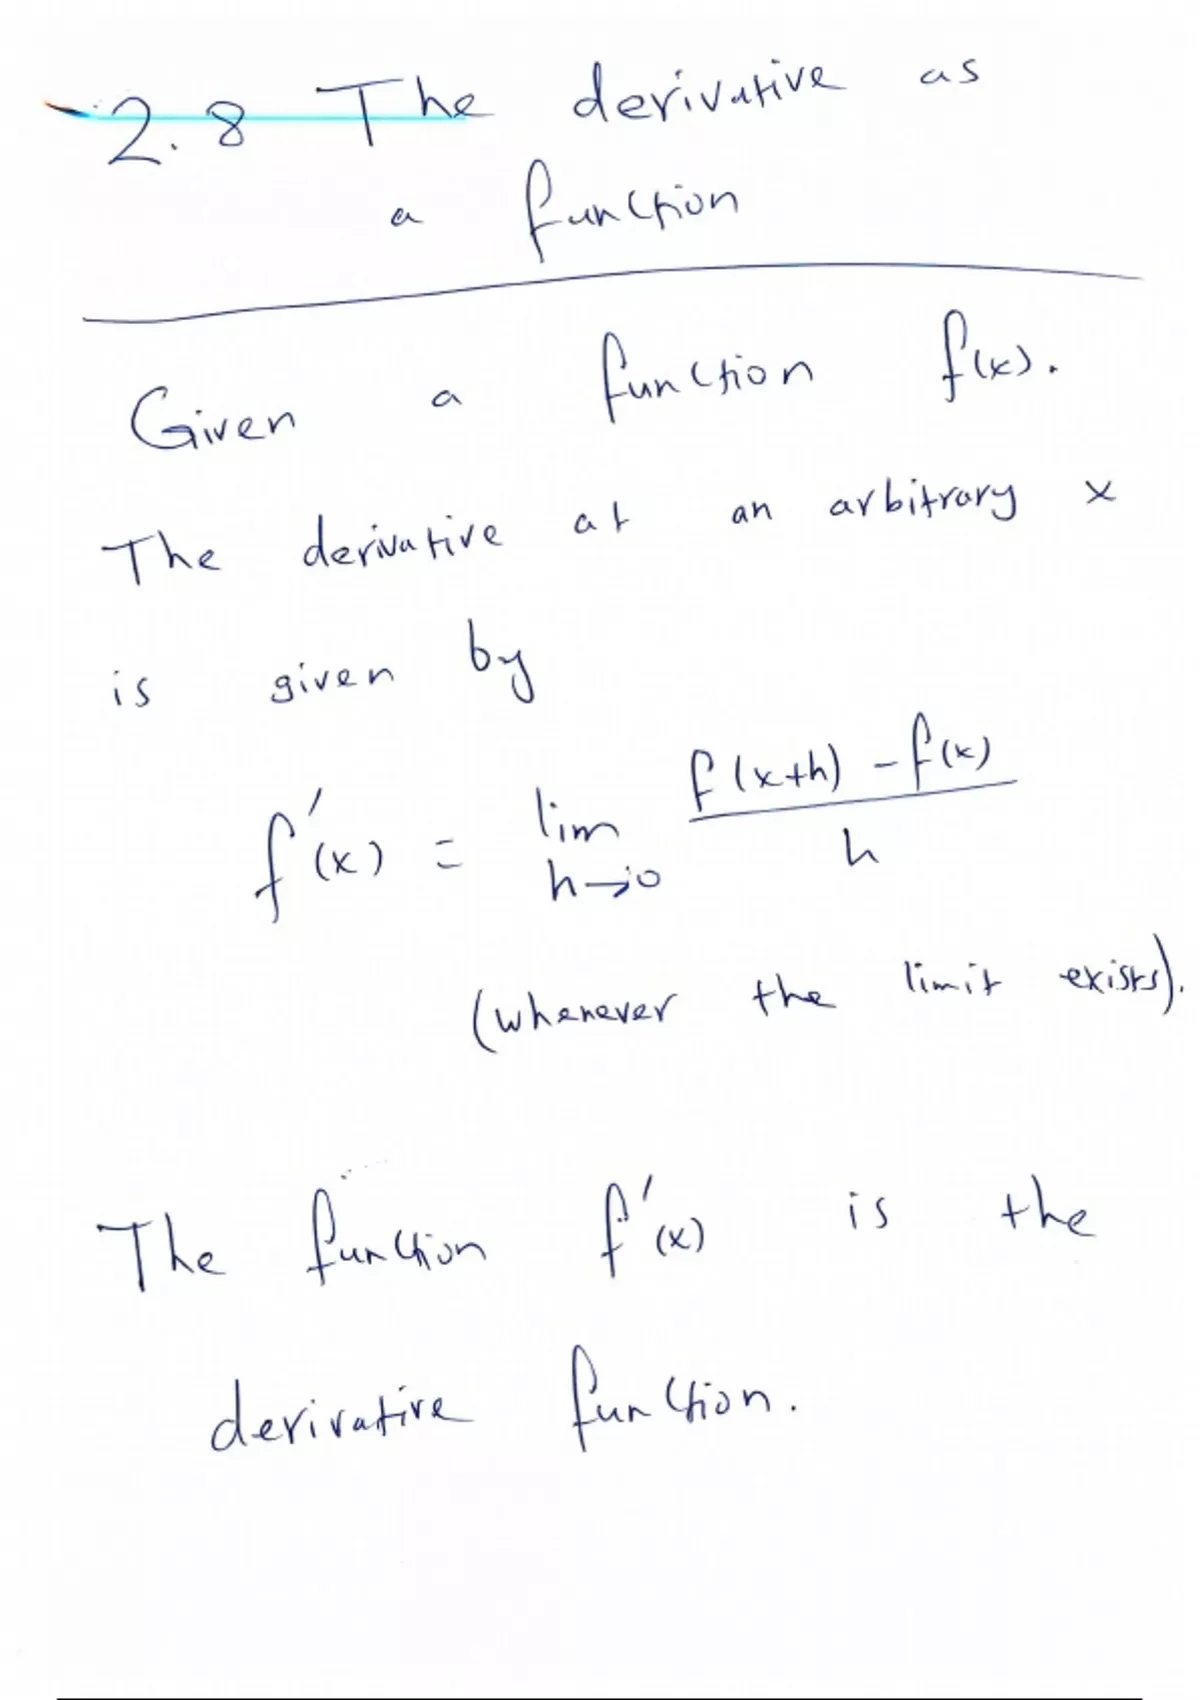 2.8 The derivative as
a function
Given a function f(x).
The derivative at an arbitrary x
is given by
f'(x) = lim h→0 f(x+h) - f(x) / h
(whenever the limit exists).
The function f'(x) is the
derivative function.